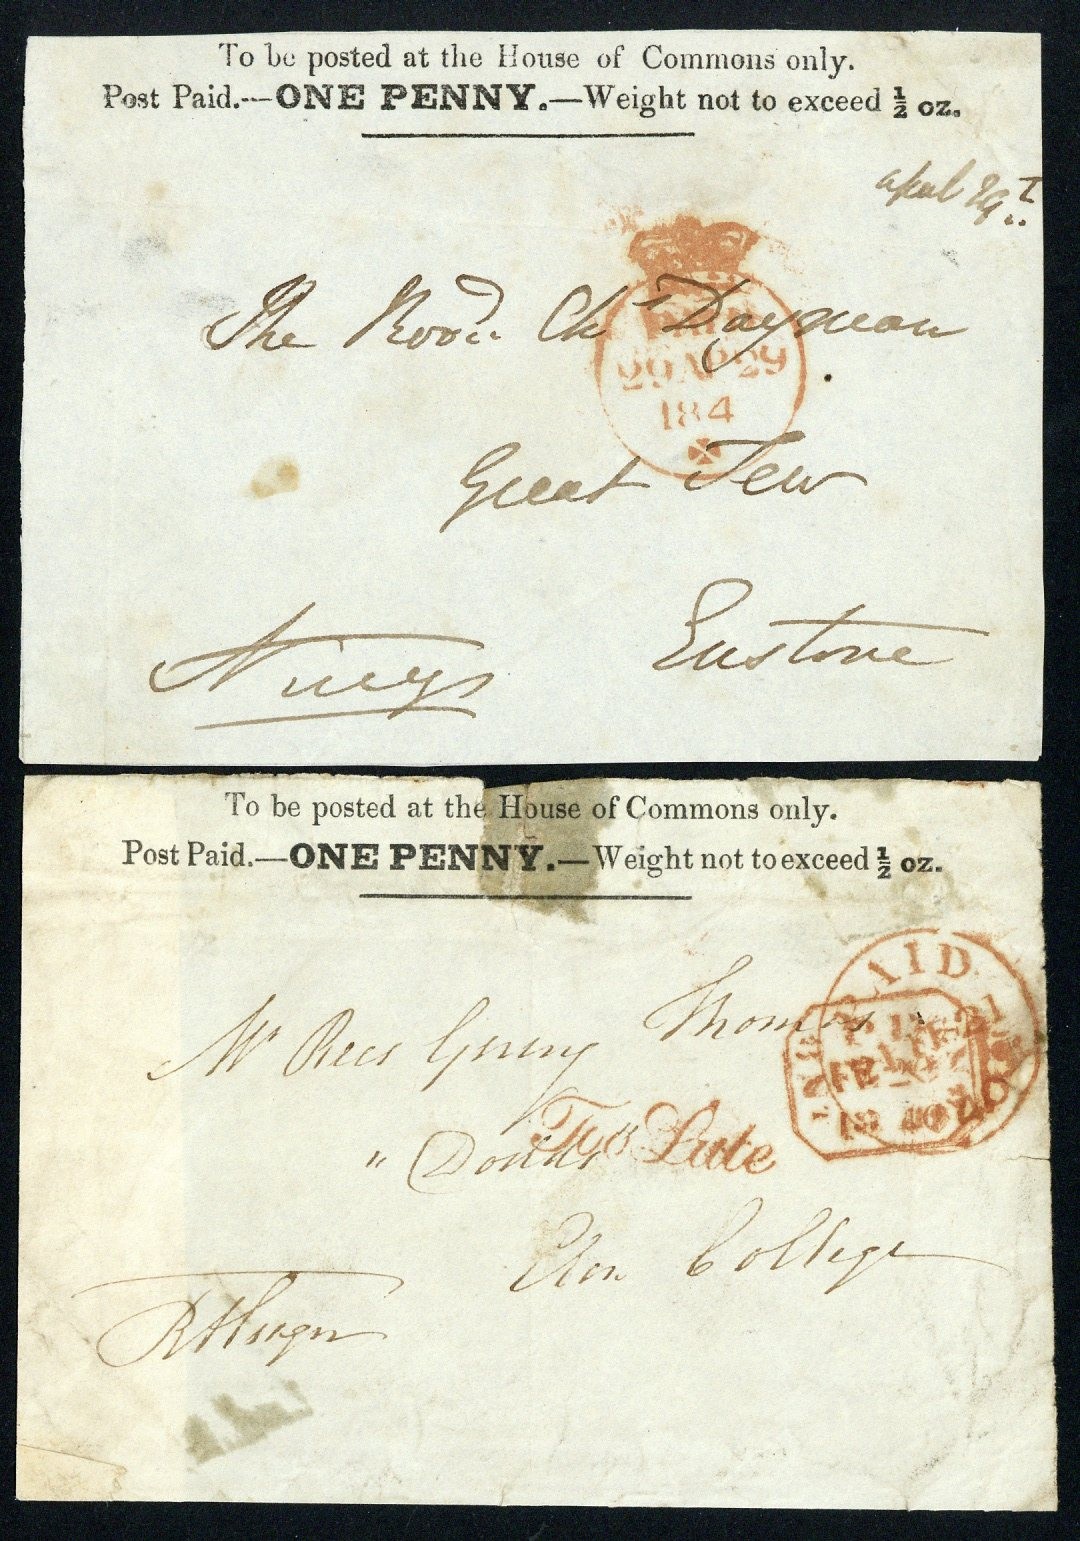 To be posted at the House of Commons only.
Post Paid.—ONE PENNY.—Weight not to exceed ½ oz.
April 29
The Revd. Chs Dayman
PAID
29 AP 29
184
Great Tew
Enstone
To be posted at the House of Commons only.
Post Paid.—ONE PENNY.—Weight not to exceed ½ oz.
PAID
Mr Rees Thomas
Too Late
Eton College